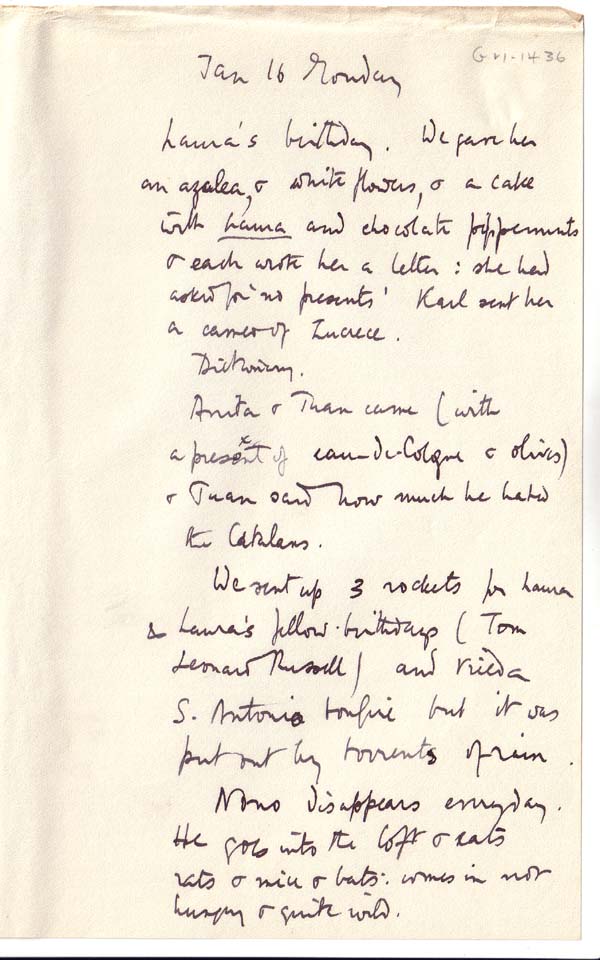 GV1-1436
Jan 16 Monday
Laura's birthday. We gave her
an azalea, & white flowers, & a cake
with Laura and chocolate peppermints
& each wrote her a letter: she had
asked for 'no presents' Karl sent her
a cameo of Lucrece.
Dictionary.
Anita & Juan came (with
a present of eau-de-Cologne & olives)
& Juan said how much he hated
the Catalans.
We sent up 3 rockets for Laura
& Laura's fellow-birthdays (Tom
Leonard Russell) and
S. Antonio bonfire but it was
put out by torrents of rain.
Nono disappears everyday.
He goes into the loft & eats
rats & mice & bats: comes in not
hungry & quite wild.